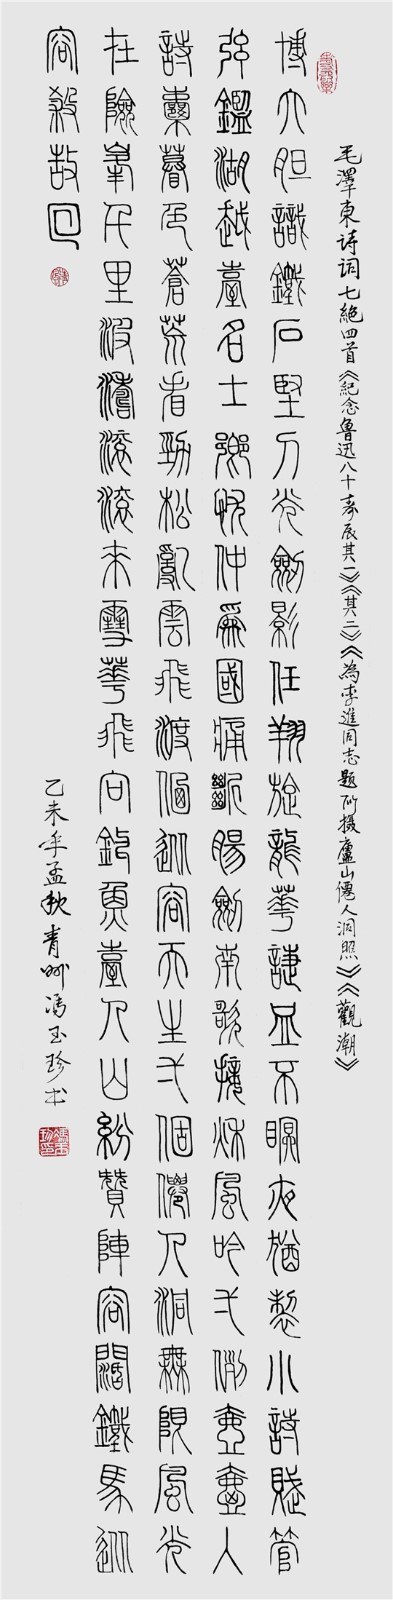 毛澤東诗词七絶四首《紀念鲁迅八十寿辰其一》《其二》《為李進同志題所摄廬山僊人洞照》《觀潮》
博大胆識鐵石堅刀光劍影任翔旋龍華諜血不眠夜猶製小詩賦管
弦鑑湖越臺名士鄉忧忡為國痛斷腸劍南歌接秋風吟弌例氤氳入
詩囊暮色蒼茫看勁松亂雲飛渡仍從容天生弌個僊人洞無限風光
在險峯千里波濤滾滾來雪華飛向釣魚臺人山紛贊陣容闊鐵馬從
容殺敌回
乙未年孟秋青州冯玉珍书